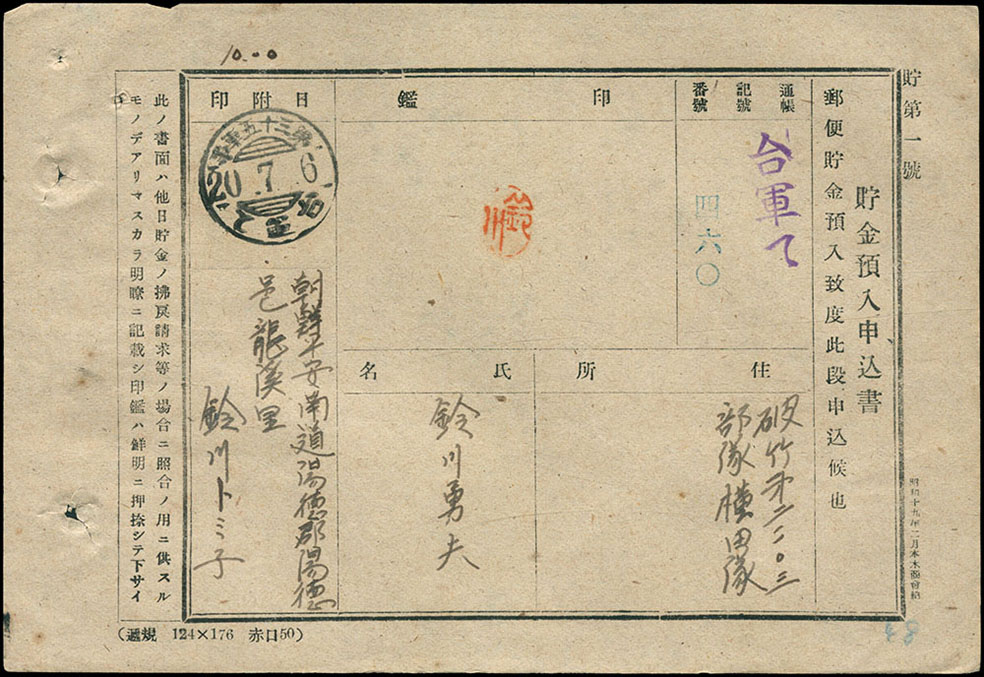 貯第一號
貯金預入申込書
郵便貯金預入致度此段申込候也
通帳
記號
番號
台軍て
四六〇
印鑑
鈴川
日附印
20.7.6
10.00
住所
破竹第二二〇三
部隊横田隊
氏名
鈴川勇夫
朝鮮平安南道陽德郡陽德
邑龍溪里
鈴川トミ子
此ノ書面ハ他日貯金ノ拂戾請求等ノ場合ニ照合ノ用ニ供スル
モノデアリマスカラ明瞭ニ記載シ印鑑ハ鮮明ニ押捺シテ下サイ
(遞規 124×176 赤口50)
48